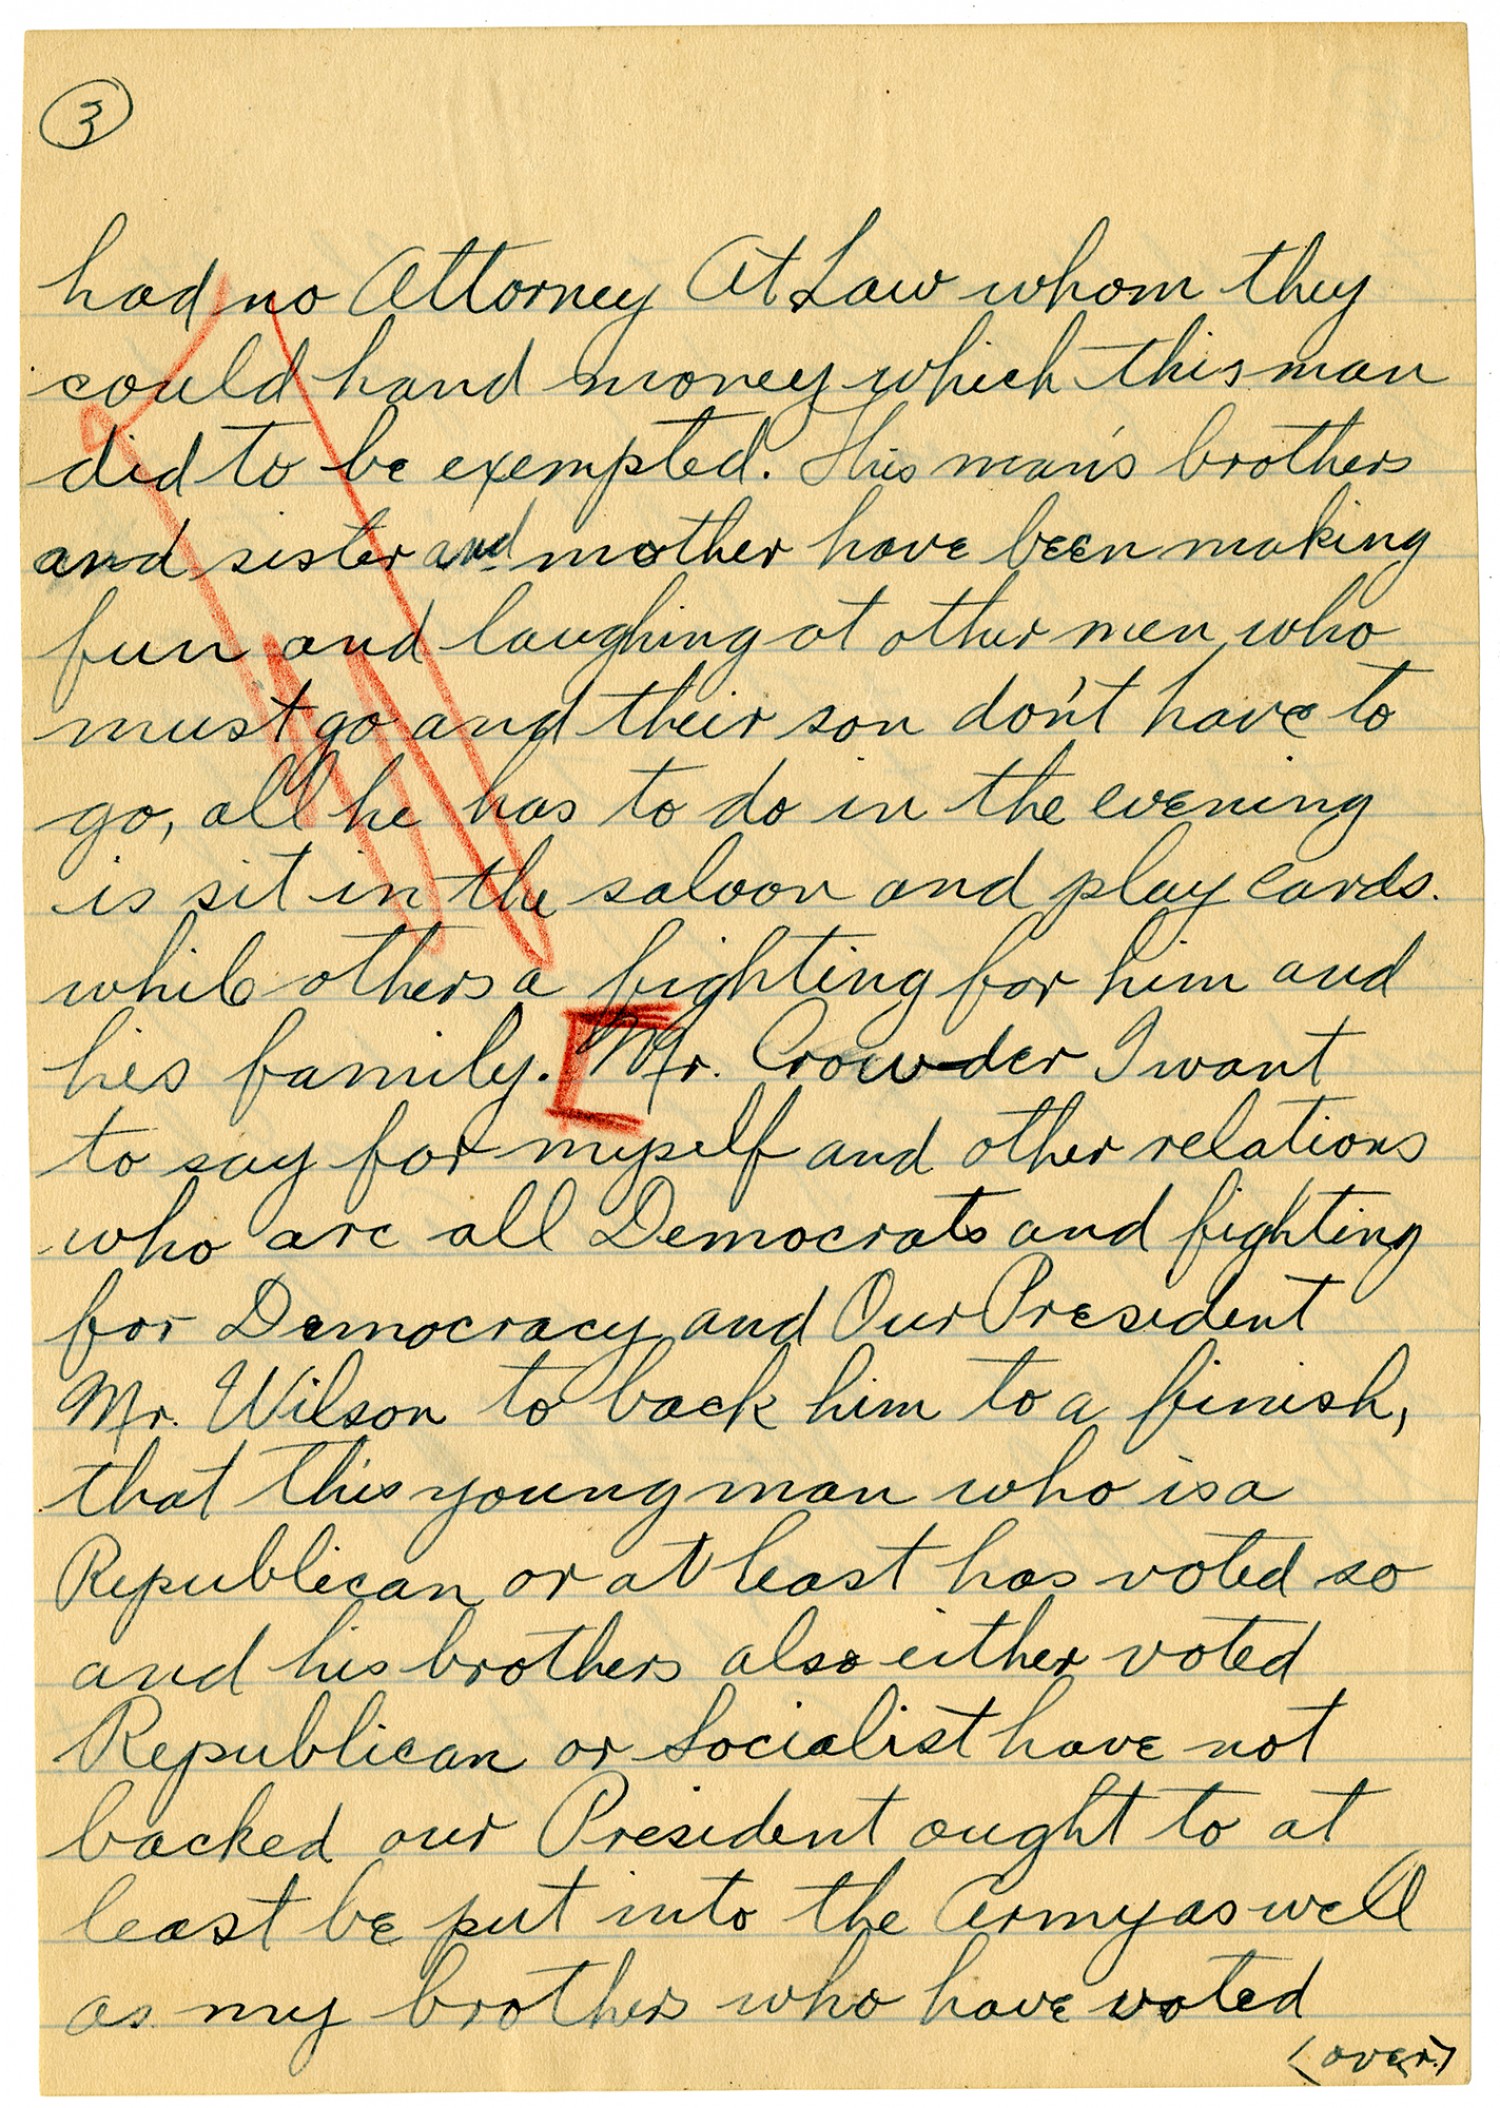 3
had no Attorney At Law whom they
could hand money which this man
did to be exempted. This man's brothers
and sister and mother have been making
fun and laughing at other men who
must go and their son don't have to
go, all he has to do in the evening
is sit in the saloon and play cards.
while others a fighting for him and
his family. Mr. Crowder I want
to say for myself and other relations
who are all Democrats and fighting
for Democracy and Our President
Mr. Wilson to back him to a finish,
that this young man who is a
Republican or at least has voted so
and his brothers also either voted
Republican or Socialist have not
backed our President ought to at
least be put into the Army as well
as my brothers who have voted
(over)